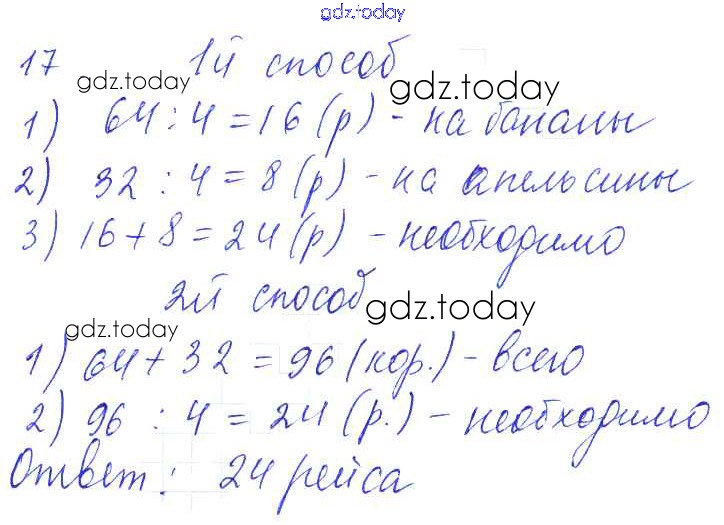 gdz.today
17 1й способ
gdz.today gdz.today
1) 64 : 4 = 16 (р) - на бананы
2) 32 : 4 = 8 (р) - на апельсины
3) 16 + 8 = 24 (р) - необходимо
2й способ
gdz.today gdz.today
1) 64 + 32 = 96 (кор.) - всего
2) 96 : 4 = 24 (р.) - необходимо
Ответ : 24 рейса